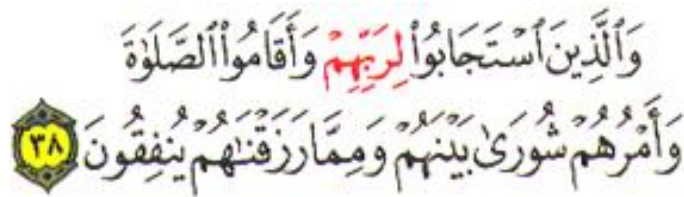 وَٱلَّذِينَ ٱسْتَجَابُوا۟ لِرَبِّهِمْ وَأَقَامُوا۟ ٱلصَّلَوٰةَ
وَأَمْرُهُمْ شُورَىٰ بَيْنَهُمْ وَمِمَّا رَزَقْنَـٰهُمْ يُنفِقُونَ ٣٨